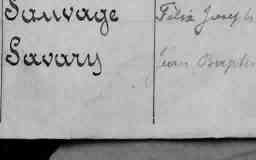 Sauvage Félix Joseph
Savary Jean Baptis